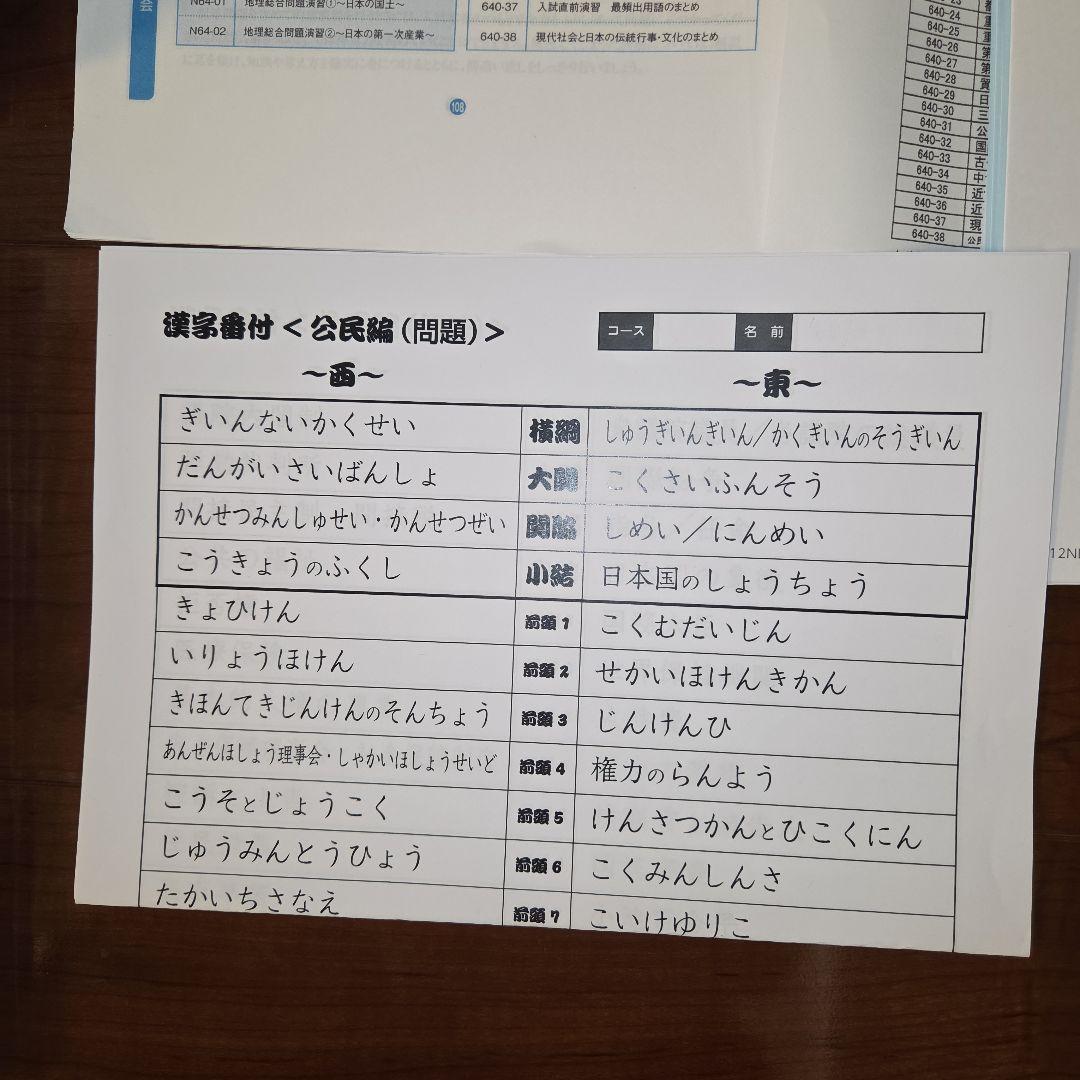 会
N64-01 地理総合問題演習①～日本の国土～
N64-02 地理総合問題演習②～日本の第一次産業～
640-37 入試直前演習 最頻出用語のまとめ
640-38 現代社会と日本の伝統行事・文化のまとめ
108
640-24 重
640-25 重
640-26 第
640-27 第
640-28 貿
640-29 日
640-30 三
640-31 公
640-32 国
640-33 古
640-34 中
640-35 近
640-36 近
640-37 現
640-38 公民
漢字番付＜公民編（問題）＞
コース 名前
～西～ ～東～
ぎいんないかくせい 横綱 しゅうぎいんぎいん／かくぎいんのそうぎいん
だんがいさいばんしょ 大関 こくさいふんそう
かんせつみんしゅせい・かんせつぜい 関脇 しめい／にんめい
こうきょうのふくし 小結 日本国のしょうちょう
きょひけん 前頭1 こくむだいじん
いりょうほけん 前頭2 せかいほけんきかん
きほんてきじんけんのそんちょう 前頭3 じんけんひ
あんぜんほしょう理事会・しゃかいほしょうせいど 前頭4 権力のらんよう
こうそとじょうこく 前頭5 けんさつかんとひこくにん
じゅうみんとうひょう 前頭6 こくみんしんさ
たかいちさなえ 前頭7 こいけゆりこ